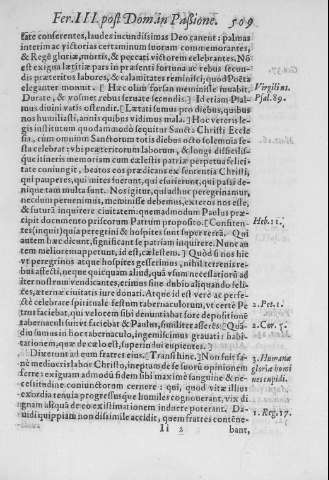 Fer. III. post Dom. in Passione. 509
sate conferentes, laudes incundissimas Deo canent: palmas
interim ac victorias certaminum suorum commemorantes,
& Regē gloriæ, mortis, & peccati victorem celebrantes. Nō
est exigua lætitiæ pars in præsenti fortuna ac rebus secun-
dis præteritos labores, & calamitates reminisci; quod Poëta
eleganter monuit. [Hæc olim forsan meminisse iuvabit.
Virgilius.
Durate, & vosmet rebus servate secundis.] Id etiam Psal-
Psal. 89.
mus divini vatis ostendit. [Lætati sumus pro diebus, quibus
nos humiliasti, annis quibus vidimus mala.] Hoc veteris le-
gis institutum quodammodo sequitur Sancta Christi Eccle
sia, cum omnium Sanctorum totis diebus octo solemnia fe-
sta celebrat: vbi præteritorum laborum, & longi difficilis-
que itineris memoriam cum cælestis patriæ perpetua felicita
te coniungit, beatos eos prædicans ex sententia Christi,
qui pauperes, qui mites fuerunt, qui esurierunt, qui passi de-
nique tam multa sunt. Nos igitur, qui adhuc peregrinamur,
necdum pervenimus, meminisse debemus, exteros nos esse,
& futurā inquirere civitatem: quemadmodum Paulus præ-
cipit documento priscorum Patrum proposito. [Confiten-
Heb. 11.
tes (inquit) quia peregrini & hospites sunt super terrā. Qui
autem hæc dicunt, significant se patriam inquirere. Nunc au
tem meliorem appetunt, id est, cælestem.] Quòd si nos hic
vt peregrinos atque hospites gessimus, nihil terrenis re-
bus affecti, neque quicquam aliud, quā vsum necessariorū ad
iter nostrum vendicantes, erimus sine dubio aliquando feli-
ces, æternæ civitatis iure donati. Atque id est verè ac perfe-
ctè celebrare spirituale festum tabernaculorum, vt certè Pe
2. Pet. 1.
trus faciebat, qui velorem sibi denuntiabat fore depositionē
tabernaculi sunt et faciebat & Paulus, similiter asserēs. [Quā-
2. Cor. 5.
diu sumus in hoc tabernaculo, ingemiscimus gravati: habi-
tationem, quæ de cælo est, superindui cupientes.]
Dixerunt ad eum fratres eius. Transi hinc.] Non fuit sa-
3. Humanæ
nè mediocris labor Christo, ineptum de se suorū opinionem
gloriæ homi
ferre: exiguam admodū fidem sibi maximè sanguine & ne-
nes cupidi.
cessitudine coniunctorum cernere: qui, quod vitæ illius
exordia tenuia progressusque humiles cognoverant, vix di
gnam aliquā de eo existimationem inducere poterant. Da-
1. Reg. 17.
vidi quippiam non dissimile accidit, quem fratres contēne-
Ii 2 bant,